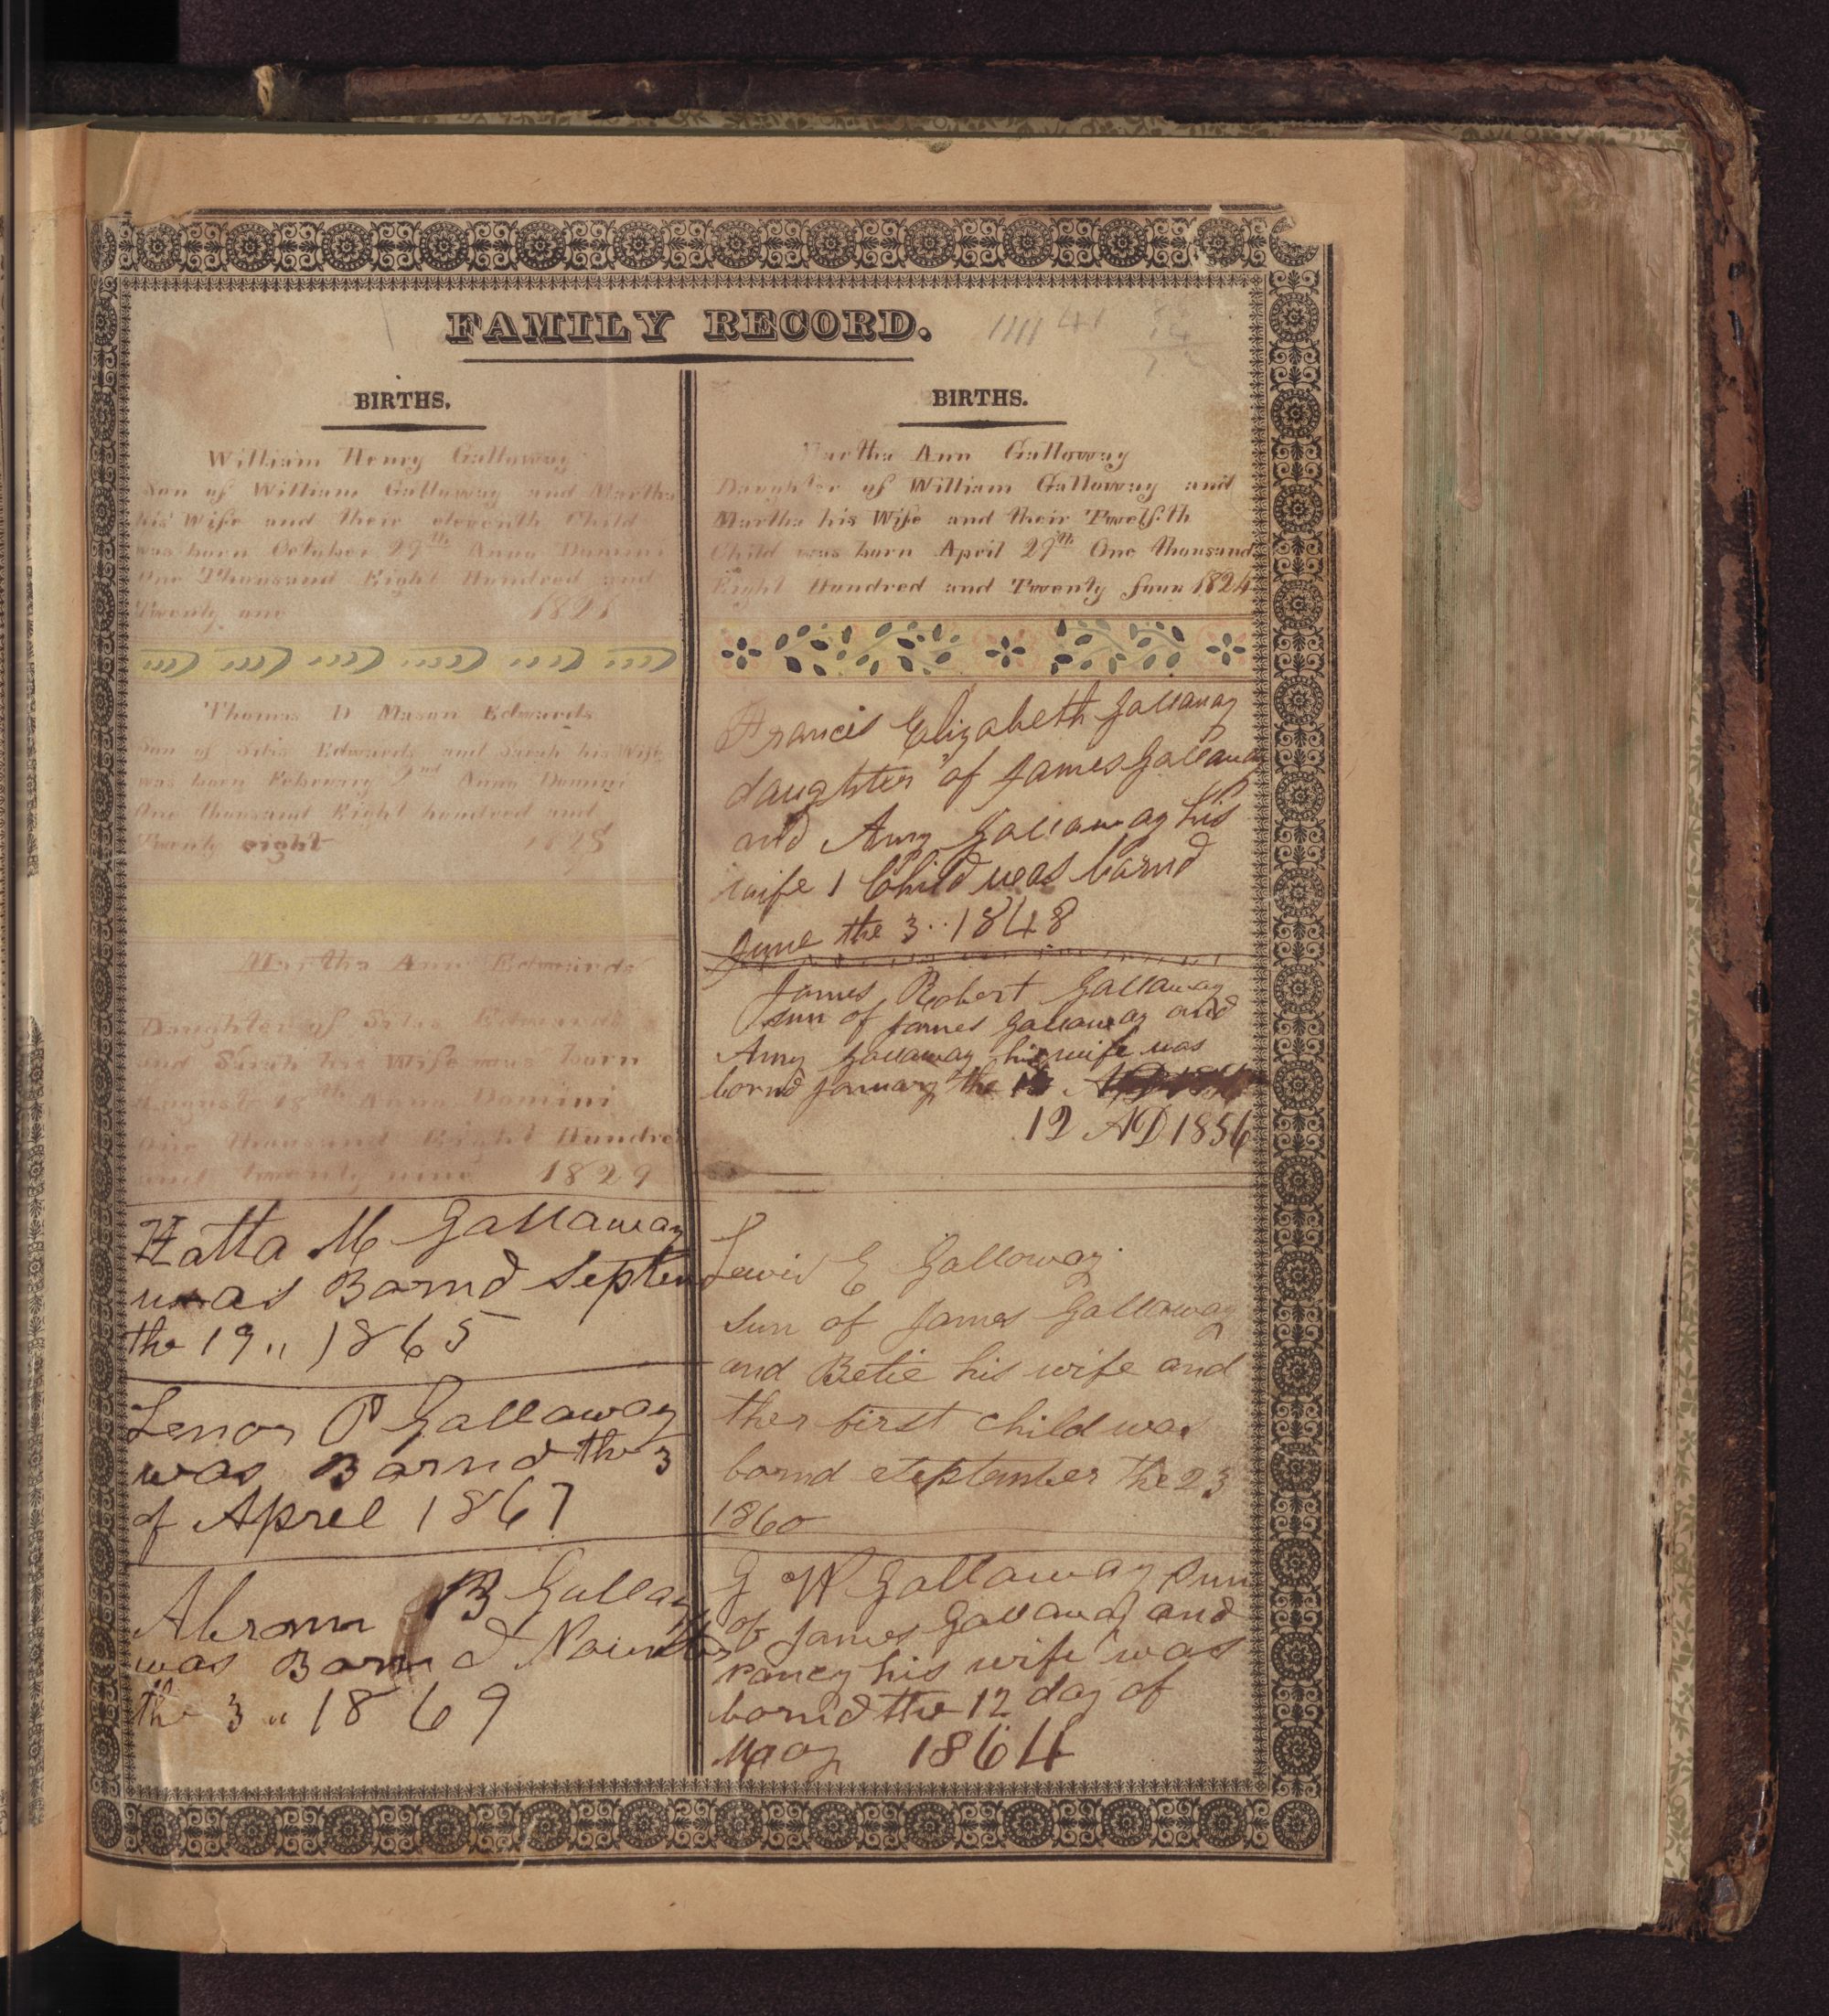 FAMILY RECORD.
1111 41
BIRTHS.
William Henry Galloway
Son of William Galloway and Martha
his Wife and their eleventh Child
was born October 29th Anno Domini
One Thousand Eight Hundred and
Twenty one 1821
Thomas D Mason Edwards
Son of Silis Edwards and Sarah his Wife
was born Feberury 2nd Anno Domini
One thousand Eight hundred and
Twenty eight 1828
Martha Ann Edwards
Daughter of Edwards
and Sarah his Wife was born
August 18th Anno Domini
One thousand Eight Hundred
and twenty nine 1829
Hatta M Gallaway
was Barnd Septem
the 19 " 1865
Lenor P Gallaway
was Barnd the 3
of Aprel 1867
Abram B Gallay
was Barnd
the 3 " 1869
BIRTHS.
Martha Ann Galloway
Daughter of William Galloway and
Martha his Wife and their Twelfth
Child was born April 29th One thousand
Eight Hundred and Twenty four 1824
Francis Elizabeth Gallaway
daughter of James Gallaway
and Amy Gallaway his
wife 1 Child was barnd
June the 3 .. 1848
James Robert Gallaway
sun of James Gallaway and
Amy Gallaway his wife was
bornd January the
12 AD 1856
Lewis E Galloway
sun of James Galloway
and Betie his wife and
ther first child was
bornd September the 23
1860
G W Gallaway sun
of James Gallaway and
nancy his wife was
barnd the 12 day of
May 1864